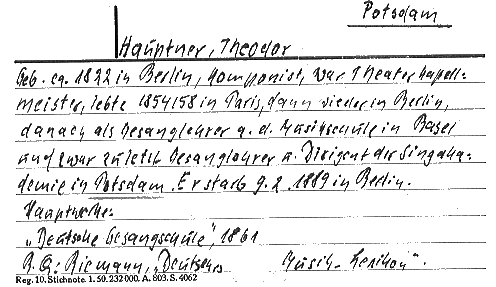 Potsdam
Hauptner, Theodor
Geb. ca. 1822 in Berlin, Komponist, war Theaterkapell-
meister, lebte 1854/58 in Paris, dann wieder in Berlin,
danach als Gesanglehrer a. d. Musikschule in Basel
und zwar zuletzt Gesanglehrer u. Dirigent der Singaka-
demie in Potsdam. Er starb 9.2.1889 in Berlin.
Hauptwerke:
„Deutsche Gesangschule", 1861
Riemann, „Deutsches Musik-Lexikon".
Reg. 10. Stichnote. 1. 50. 232 000. A. 803. S. 4062